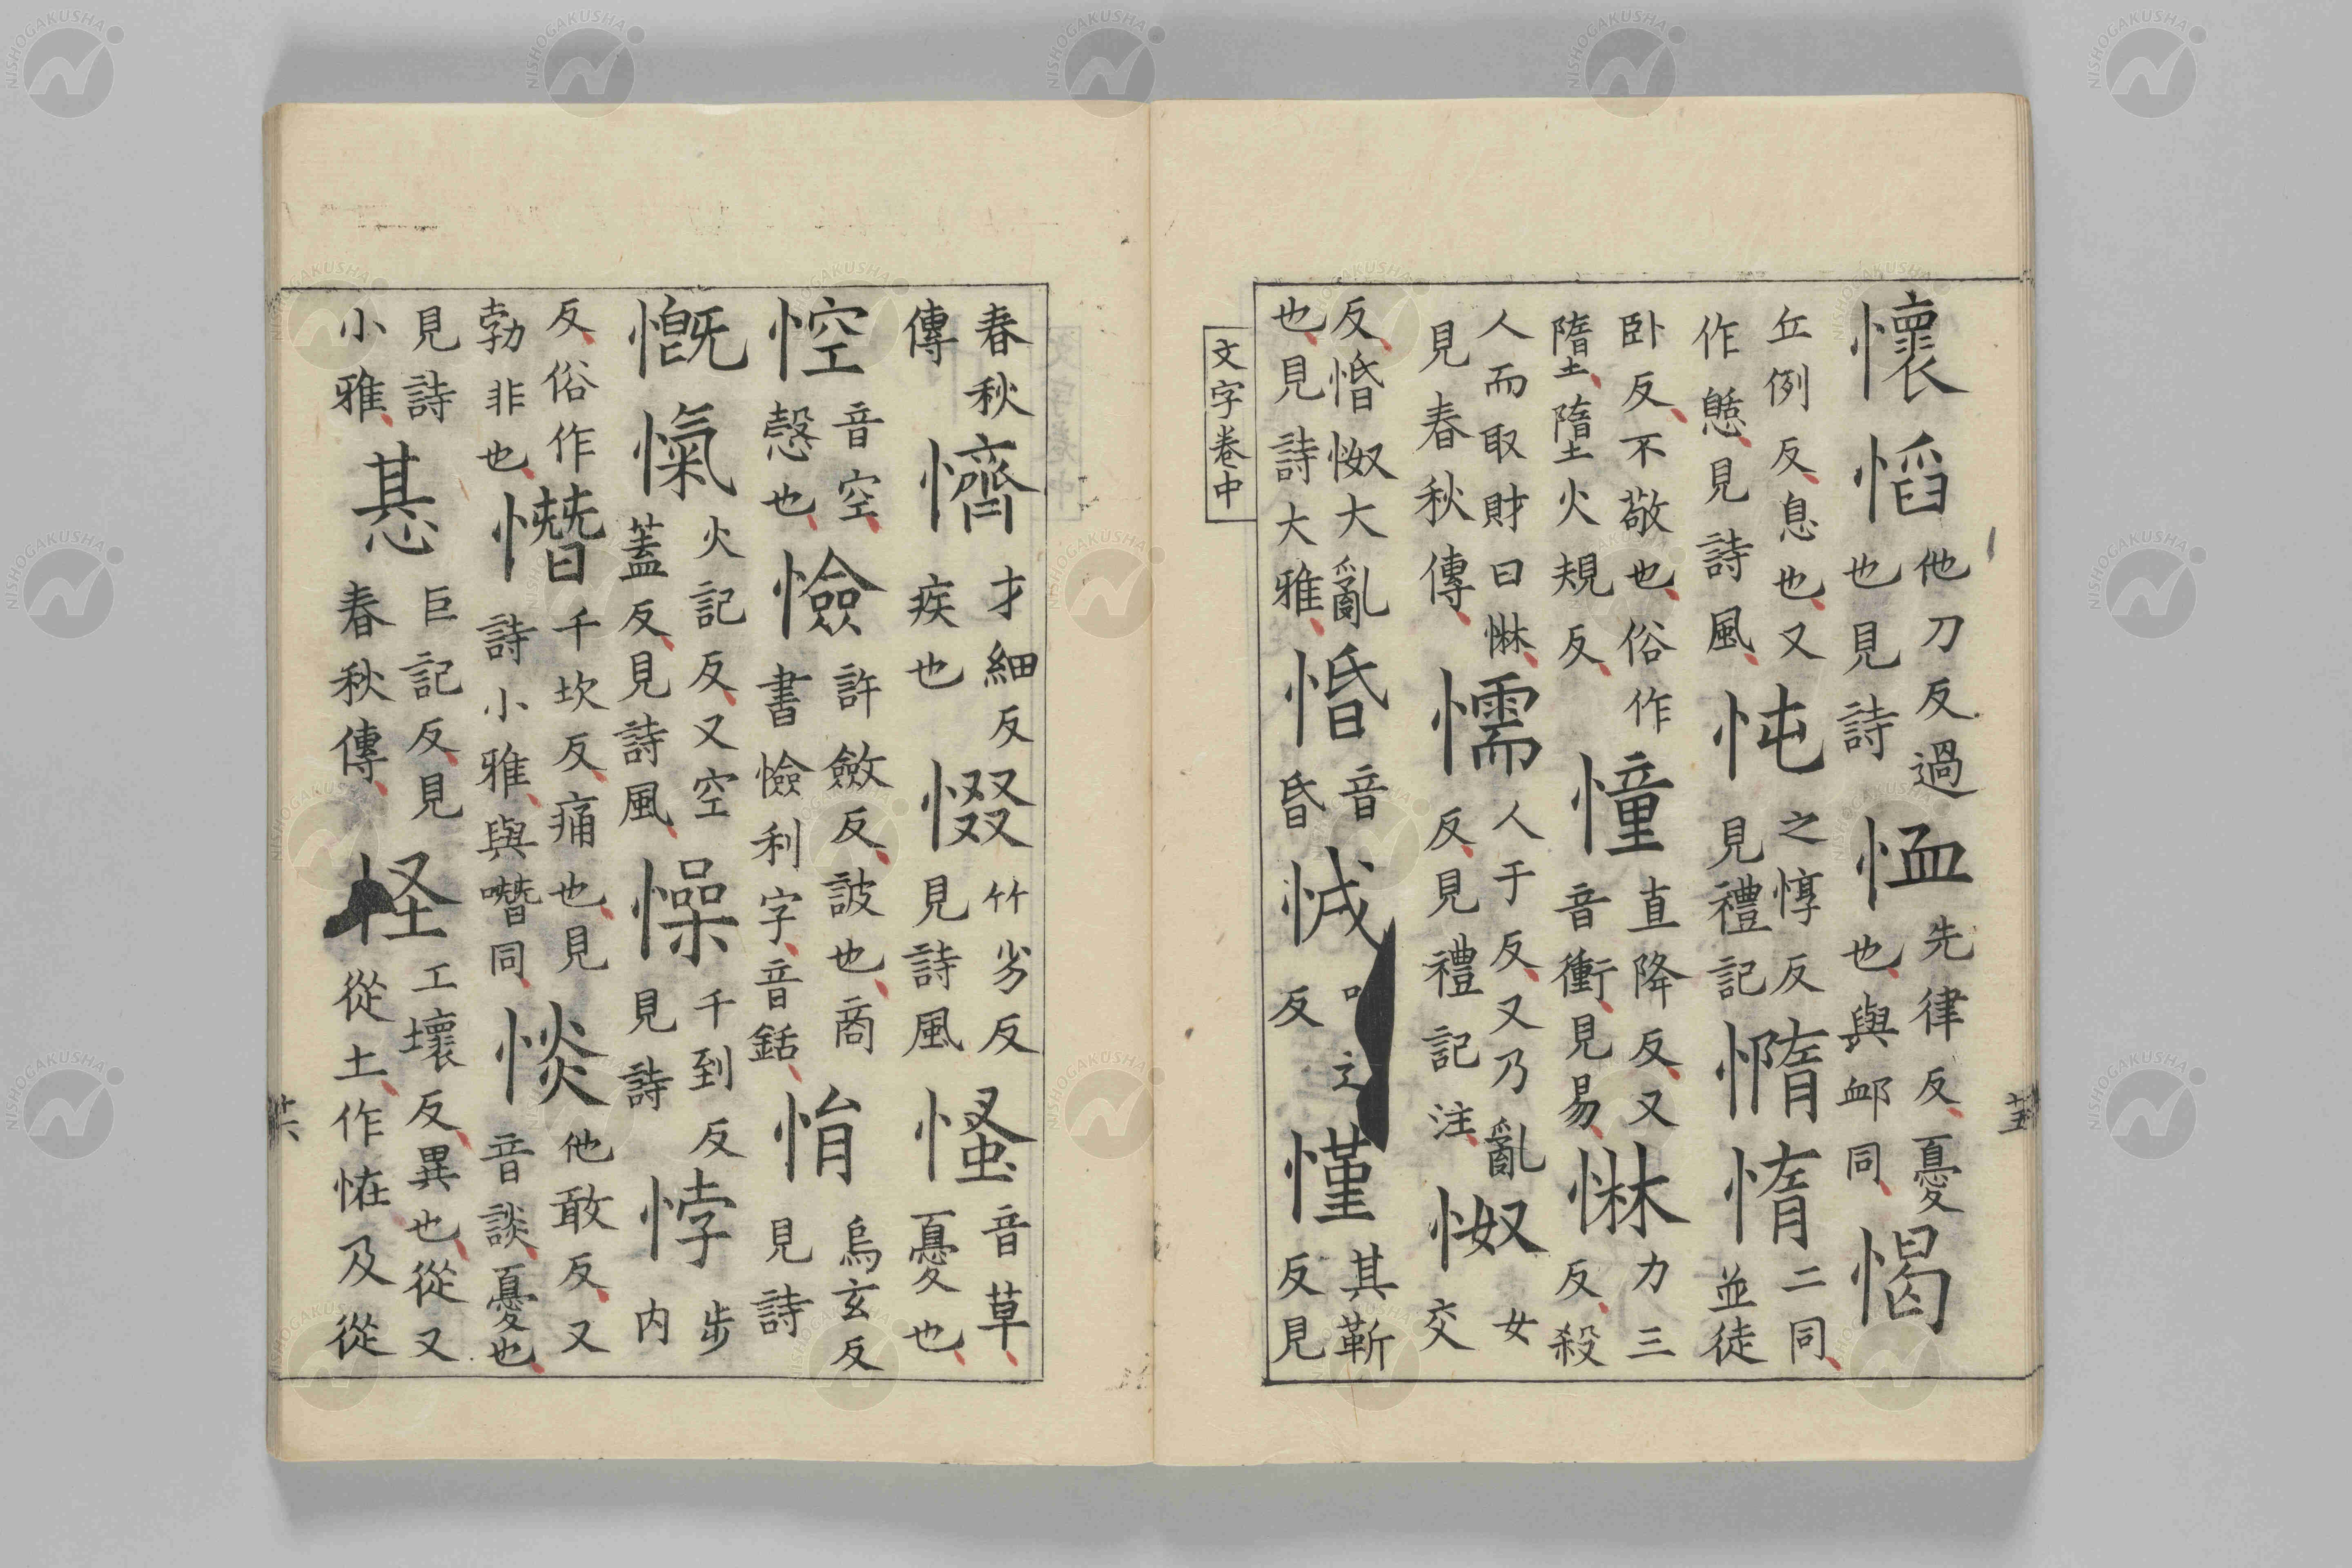 懷慆他刀反過也見詩恤先律反憂也與卹同愒
丘例反息也又作憇見詩風忳之惇反見禮記憜惰二同並徒
卧反不敬也俗作墮墮火規反憧直降反又音衝見易惏力三反殺
人而取財曰惏見春秋傳懦人于反又乃亂反見禮記注怓女交
反惛怓大亂也見詩大雅惛音昏悈反慬其靳反見
文字卷中
春秋傳懠才細反疾也惙竹劣反見詩風慅音草憂也
悾音空空愨也憸許斂反詖也商書憸利字音銛悁烏玄反見詩
慨愾火記反又空蓋反見詩風懆千到反見詩悖步内
反俗作勃非也憯千坎反痛也見詩小雅與噆同惔他敢反又音談憂也
見詩小雅惎巨記反見春秋傳怪工壞反異也從又從土作恠及從